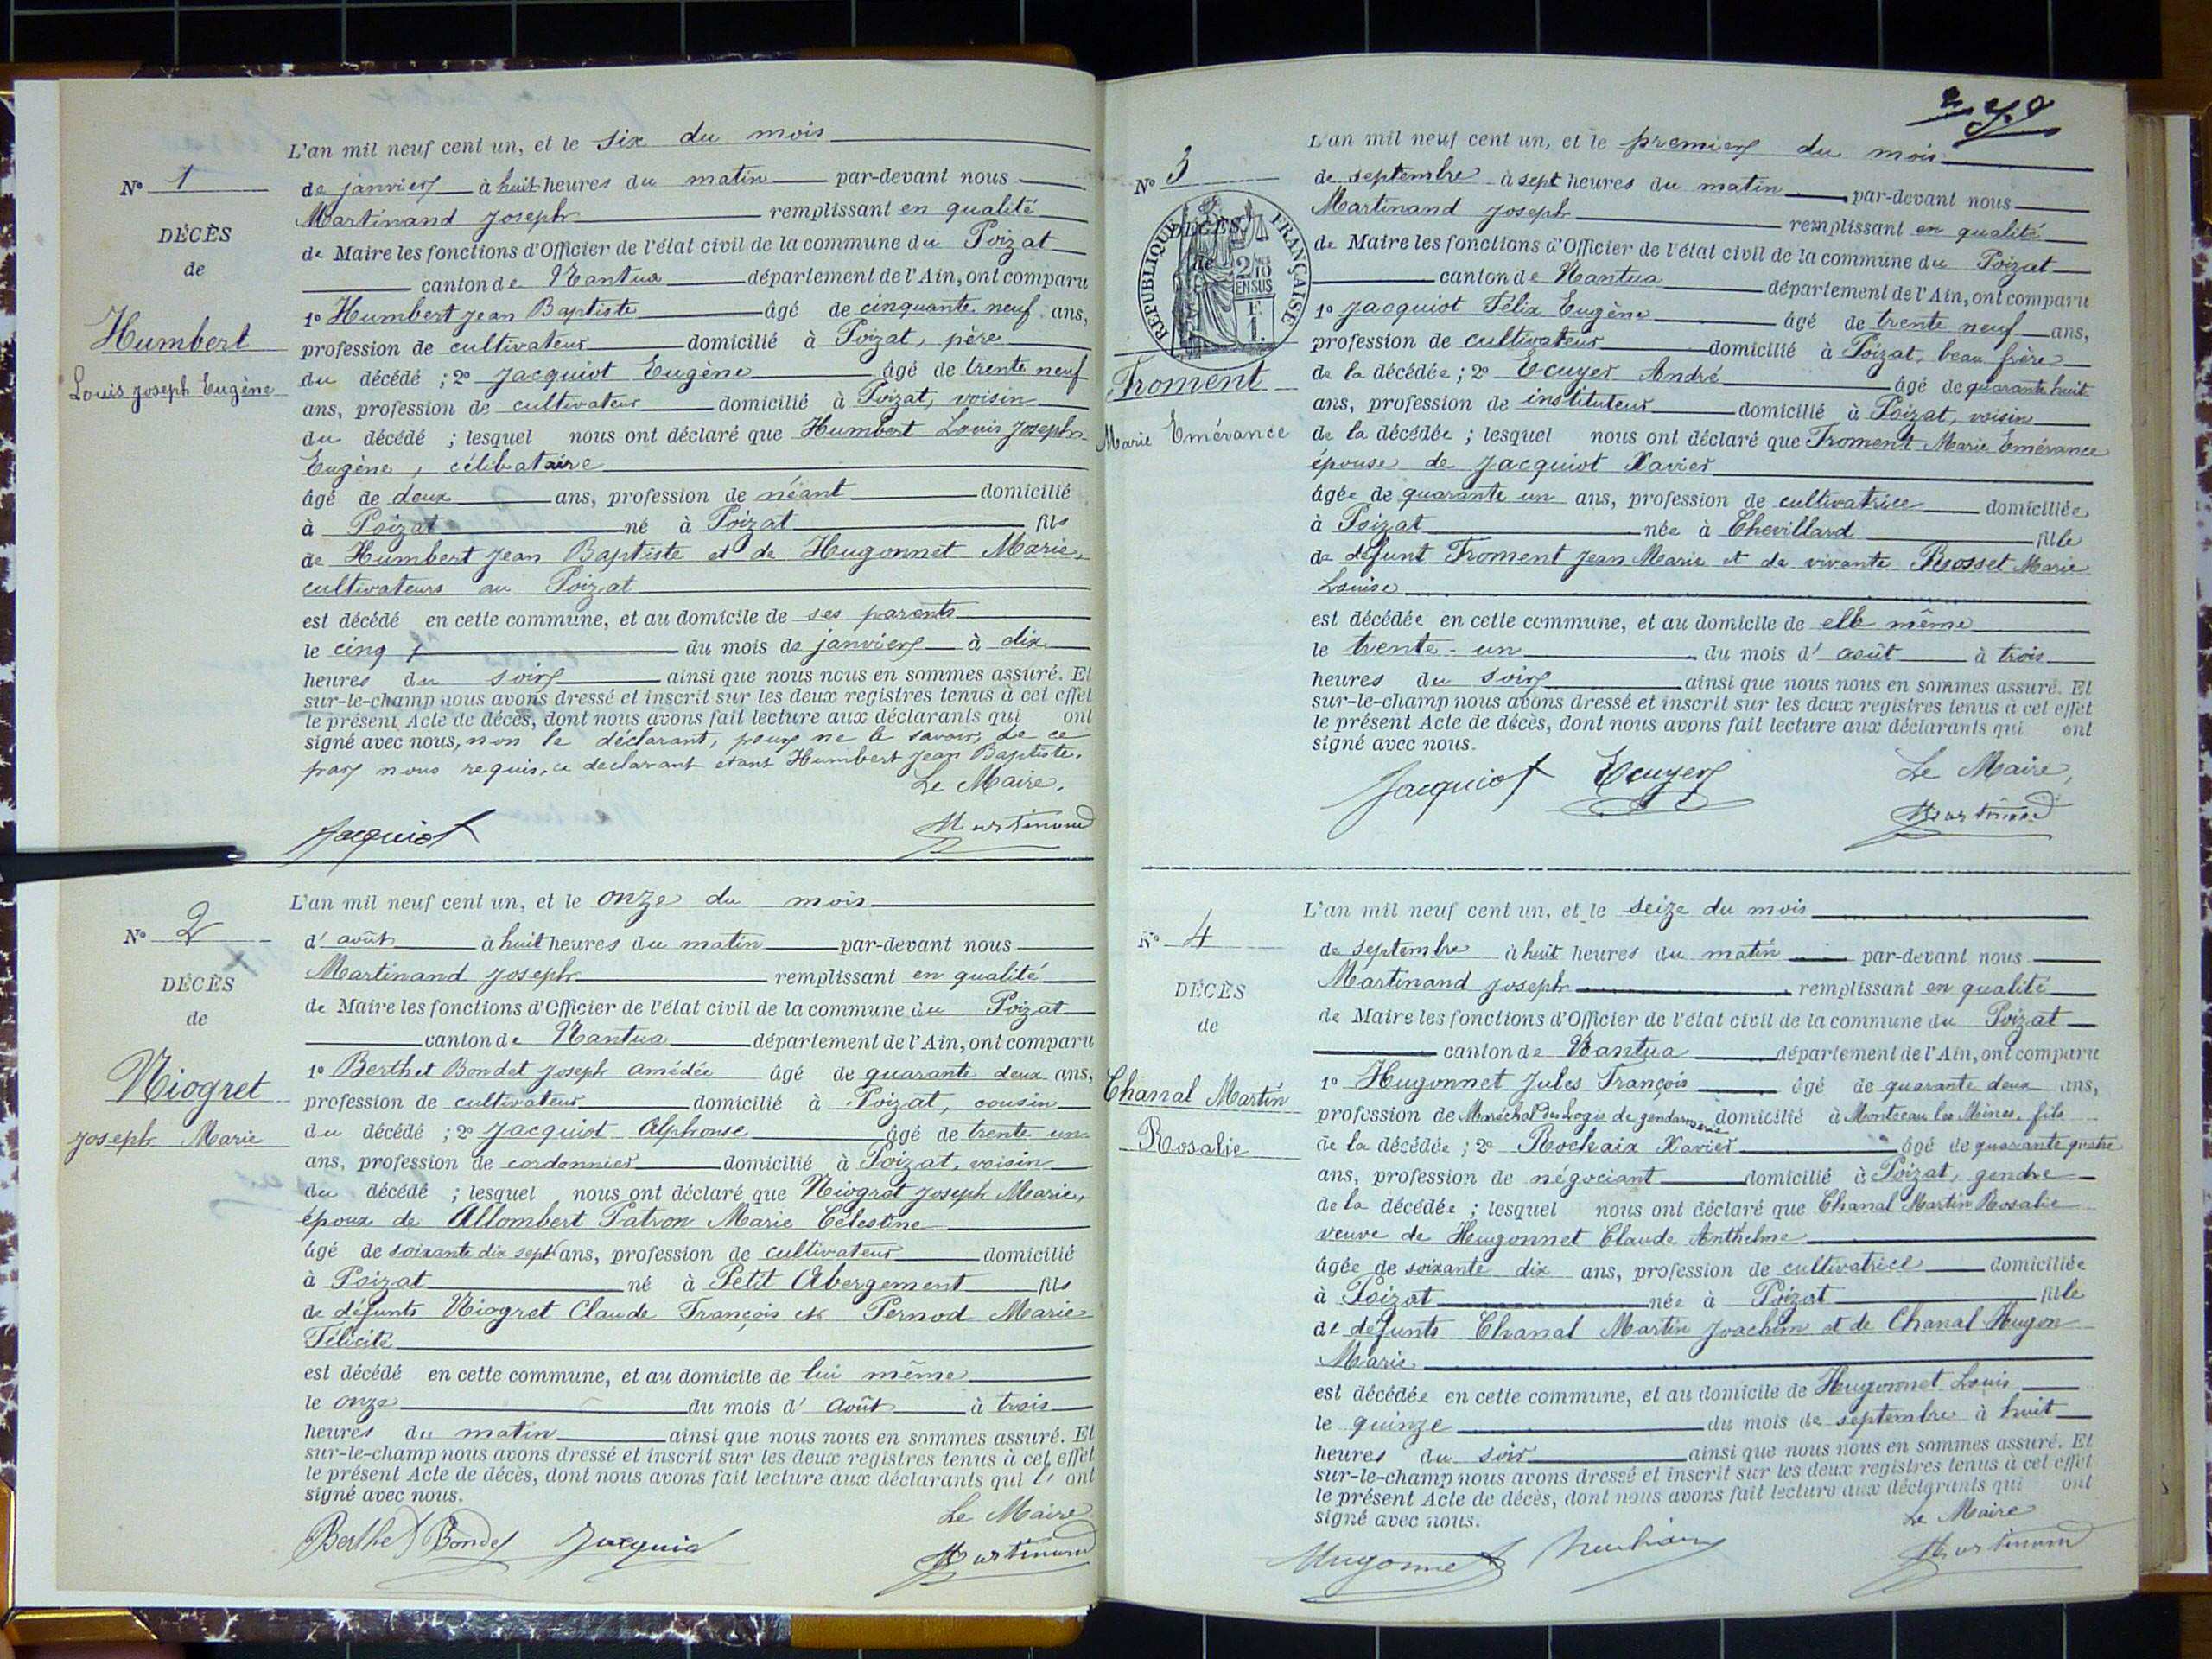 L'an mil neuf cent un, et le six du mois
N° 1
de janvier à huit heures du matin par-devant nous
Martinand Joseph remplissant en qualité
DÉCÈS
de Maire les fonctions d'Officier de l'état civil de la commune du Poizat
de
canton de Nantua département de l'Ain, ont comparu
1° Humbert Jean Baptiste âgé de cinquante neuf ans,
Humbert
profession de cultivateur domicilié à Poizat, père
Louis Joseph Eugène
du décédé ; 2° Jacquiot Eugène âgé de trente neuf
ans, profession de cultivateur domicilié à Poizat, voisin
du décédé ; lesquel nous ont déclaré que Humbert Louis Joseph
Eugène, célibataire
âgé de deux ans, profession de néant domicilié
à Poizat né à Poizat fils
de Humbert Jean Baptiste et de Hugonnet Marie,
cultivateurs au Poizat
est décédé en cette commune, et au domicile de ses parents
le cinq du mois de janvier à dix
heures du soir ainsi que nous nous en sommes assuré. Et
sur-le-champ nous avons dressé et inscrit sur les deux registres tenus à cet effet
le présent Acte de décès, dont nous avons fait lecture aux déclarants qui ont
signé avec nous, non le déclarant, pour ne le savoir, de ce
par nous requis, ce declarant étant Humbert Jean Baptiste.
Le Maire,
Jacquiot Martinand
L'an mil neuf cent un, et le onze du mois
N° 2
d'août à huit heures du matin par-devant nous
Martinand Joseph remplissant en qualité
DÉCÈS
de Maire les fonctions d'Officier de l'état civil de la commune du Poizat
de
canton de Nantua département de l'Ain, ont comparu
1° Berthet Bondet Joseph Amédée âgé de quarante deux ans,
Niogret
profession de cultivateur domicilié à Poizat, cousin
Joseph Marie
du décédé ; 2° Jacquiot Alphonse âgé de trente un
ans, profession de cordonnier domicilié à Poizat, voisin
du décédé ; lesquel nous ont déclaré que Niogret Joseph Marie,
époux de Allombert Patron Marie Célestine
âgé de soixante dix sept ans, profession de cultivateur domicilié
à Poizat né à Petit Abergement fils
de défunts Niogret Claude François et Pernod Marie
Félicité
est décédé en cette commune, et au domicile de lui même
le onze du mois d'août à trois
heures du matin ainsi que nous nous en sommes assuré. Et
sur-le-champ nous avons dressé et inscrit sur les deux registres tenus à cet effet
le présent Acte de décès, dont nous avons fait lecture aux déclarants qui ont
signé avec nous.
Le Maire
Berthet Bondet Jacquiot Martinand
L'an mil neuf cent un, et le premier du mois
N° 3
de septembre à sept heures du matin par-devant nous
Martinand Joseph remplissant en qualité
DÉCÈS
de
RÉPUBLIQUE FRANÇAISE
de Maire les fonctions d'Officier de l'état civil de la commune du Poizat
canton de Nantua département de l'Ain, ont comparu
1° Jacquiot Félix Eugène âgé de trente neuf ans,
profession de cultivateur domicilié à Poizat, beau frère
Froment
de la décédée ; 2° Ecuyer André âgé de quarante huit
ans, profession de instituteur domicilié à Poizat, voisin
Marie Emérance
de la décédée ; lesquel nous ont déclaré que Froment Marie Emérance
épouse de Jacquiot Xavier
âgée de quarante un ans, profession de cultivatrice domiciliée
à Poizat née à Chevillard fille
de défunt Froment Jean Marie et de vivante Rosset Marie
Louise
est décédée en cette commune, et au domicile de elle même
le trente-un du mois d'août à trois
heures du soir ainsi que nous nous en sommes assuré. Et
sur-le-champ nous avons dressé et inscrit sur les deux registres tenus à cet effet
le présent Acte de décès, dont nous avons fait lecture aux déclarants qui ont
signé avec nous.
Le Maire,
Jacquiot Ecuyer Martinand
L'an mil neuf cent un, et le seize du mois
N° 4
de septembre à huit heures du matin par-devant nous
Martinand Joseph remplissant en qualité
DÉCÈS
de Maire les fonctions d'Officier de l'état civil de la commune du Poizat
de
canton de Nantua département de l'Ain, ont comparu
1° Hugonnet Jules François âgé de quarante deux ans,
Chanal Martin
profession de Maréchal des Logis de gendarmerie domicilié à Montceau les Mines, fils
Rosalie
de la décédée ; 2° Rochaix Xavier âgé de quarante quatre
ans, profession de négociant domicilié à Poizat, gendre
de la décédée ; lesquel nous ont déclaré que Chanal Martin Rosalie
veuve de Hugonnet Claude Anthelme
âgée de soixante dix ans, profession de cultivatrice domiciliée
à Poizat née à Poizat fille
de défunts Chanal Martin Joachim et de Chanal Hugon
Marie
est décédée en cette commune, et au domicile de Hugonnet Louis
le quinze du mois de septembre à huit
heures du soir ainsi que nous nous en sommes assuré. Et
sur-le-champ nous avons dressé et inscrit sur les deux registres tenus à cet effet
le présent Acte de décès, dont nous avons fait lecture aux déclarants qui ont
signé avec nous.
Le Maire
Hugonnet Martinand